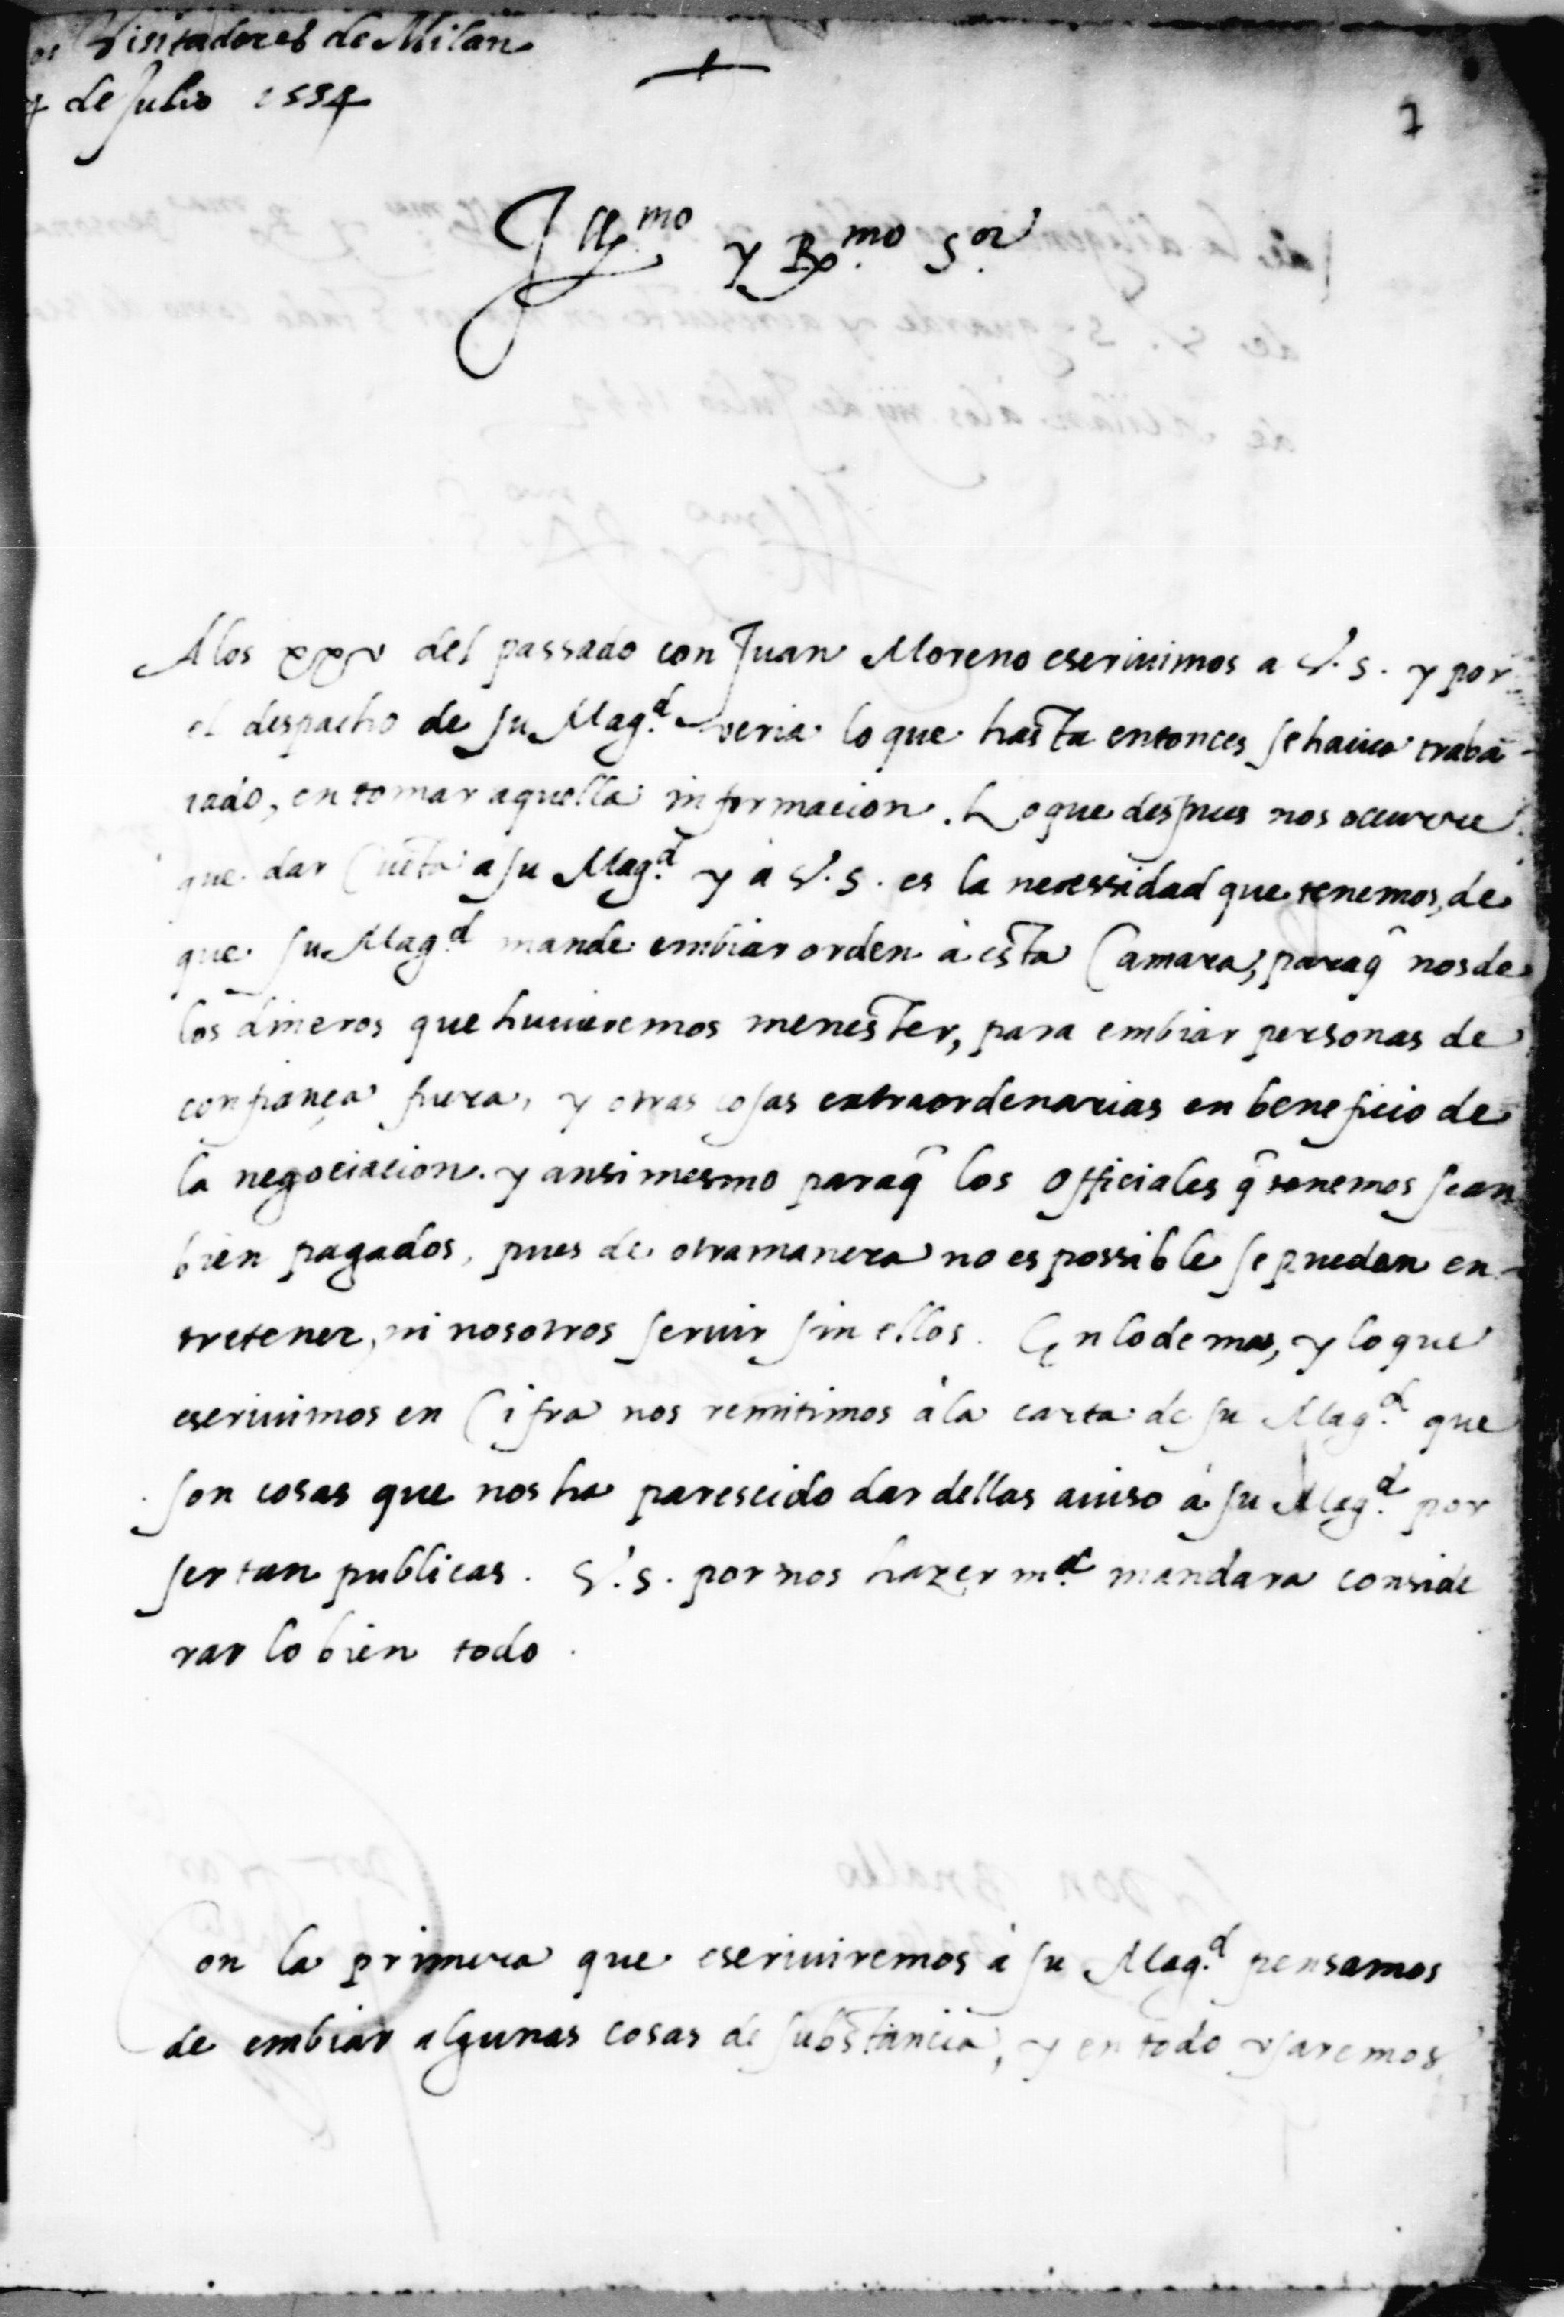 Visitadores de Milan
4 de Julio 1554
7
Ill.mo y R.mo S.or
A los xxv del passado con Juan Moreno escriuimos a V. S. y por
el despacho de su Mag.d veria lo que hasta entonces se hauia traba-
iado, en tomar aquella informacion. Lo que despues nos ocurre
que dar Cueta a su Mag.d y a V. S. es la necessidad que tenemos, de
que su Mag.d mande embiar orden à esta Camara, paraq̃ nos de
los dineros que huuieremos menester, para embiar personas de
confiança fuera, y otras cosas extraordenarias en beneficio de
la negociacion. y ansi mesmo paraq̃ los officiales q̃ tenemos sean
bien pagados, pues de otra manera no es possible se puedan en-
tretener, ni nosotros seruir sin ellos. En lo de mas, y lo que
escriuimos en Cifra nos remitimos à la carta de su Mag.d que
son cosas que nos ha parescido dar dellas auiso à su Mag.d por
ser tan publicas. V. S. por nos hazer m.d mandara conside
rar lo bien todo.
Con la primera que escriuiremos à su Mag.d pensamos
de embiar algunas cosas de substancia, y en todo vsaremos